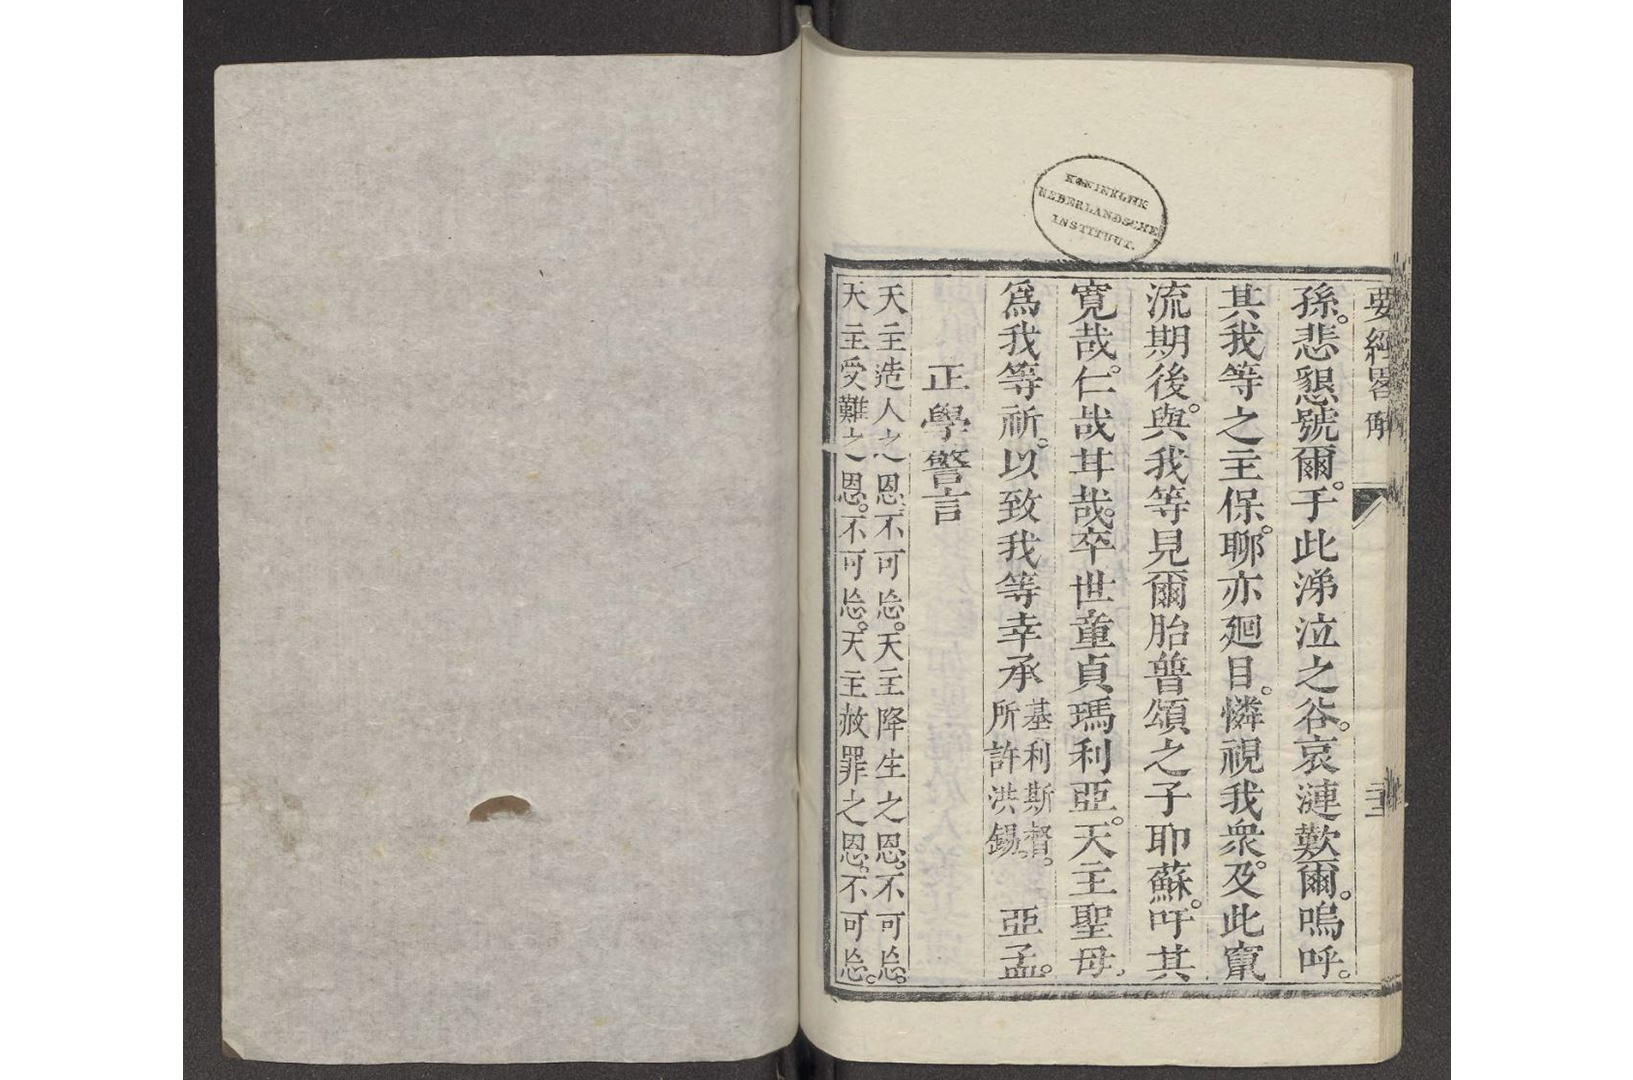 要經畧解
二十二
孫。悲懇號爾。于此涕泣之谷。哀漣歎爾。嗚呼。
其我等之主保。聊亦廻目。憐視我衆。及此竄
流期後。與我等見爾胎普頌之子耶蘇。吁其
寬哉。仁哉。甘哉。卒世童貞瑪利亞。天主聖母。
爲我等祈。以致我等幸承基利斯督。所許洪錫。 亞孟。
正學警言
天主造人之恩。不可忘。天主降生之恩。不可忘。
天主受難之恩。不可忘。天主赦罪之恩。不可忘。
KONINKLIJK
NEDERLANDSCHE
INSTITUUT.